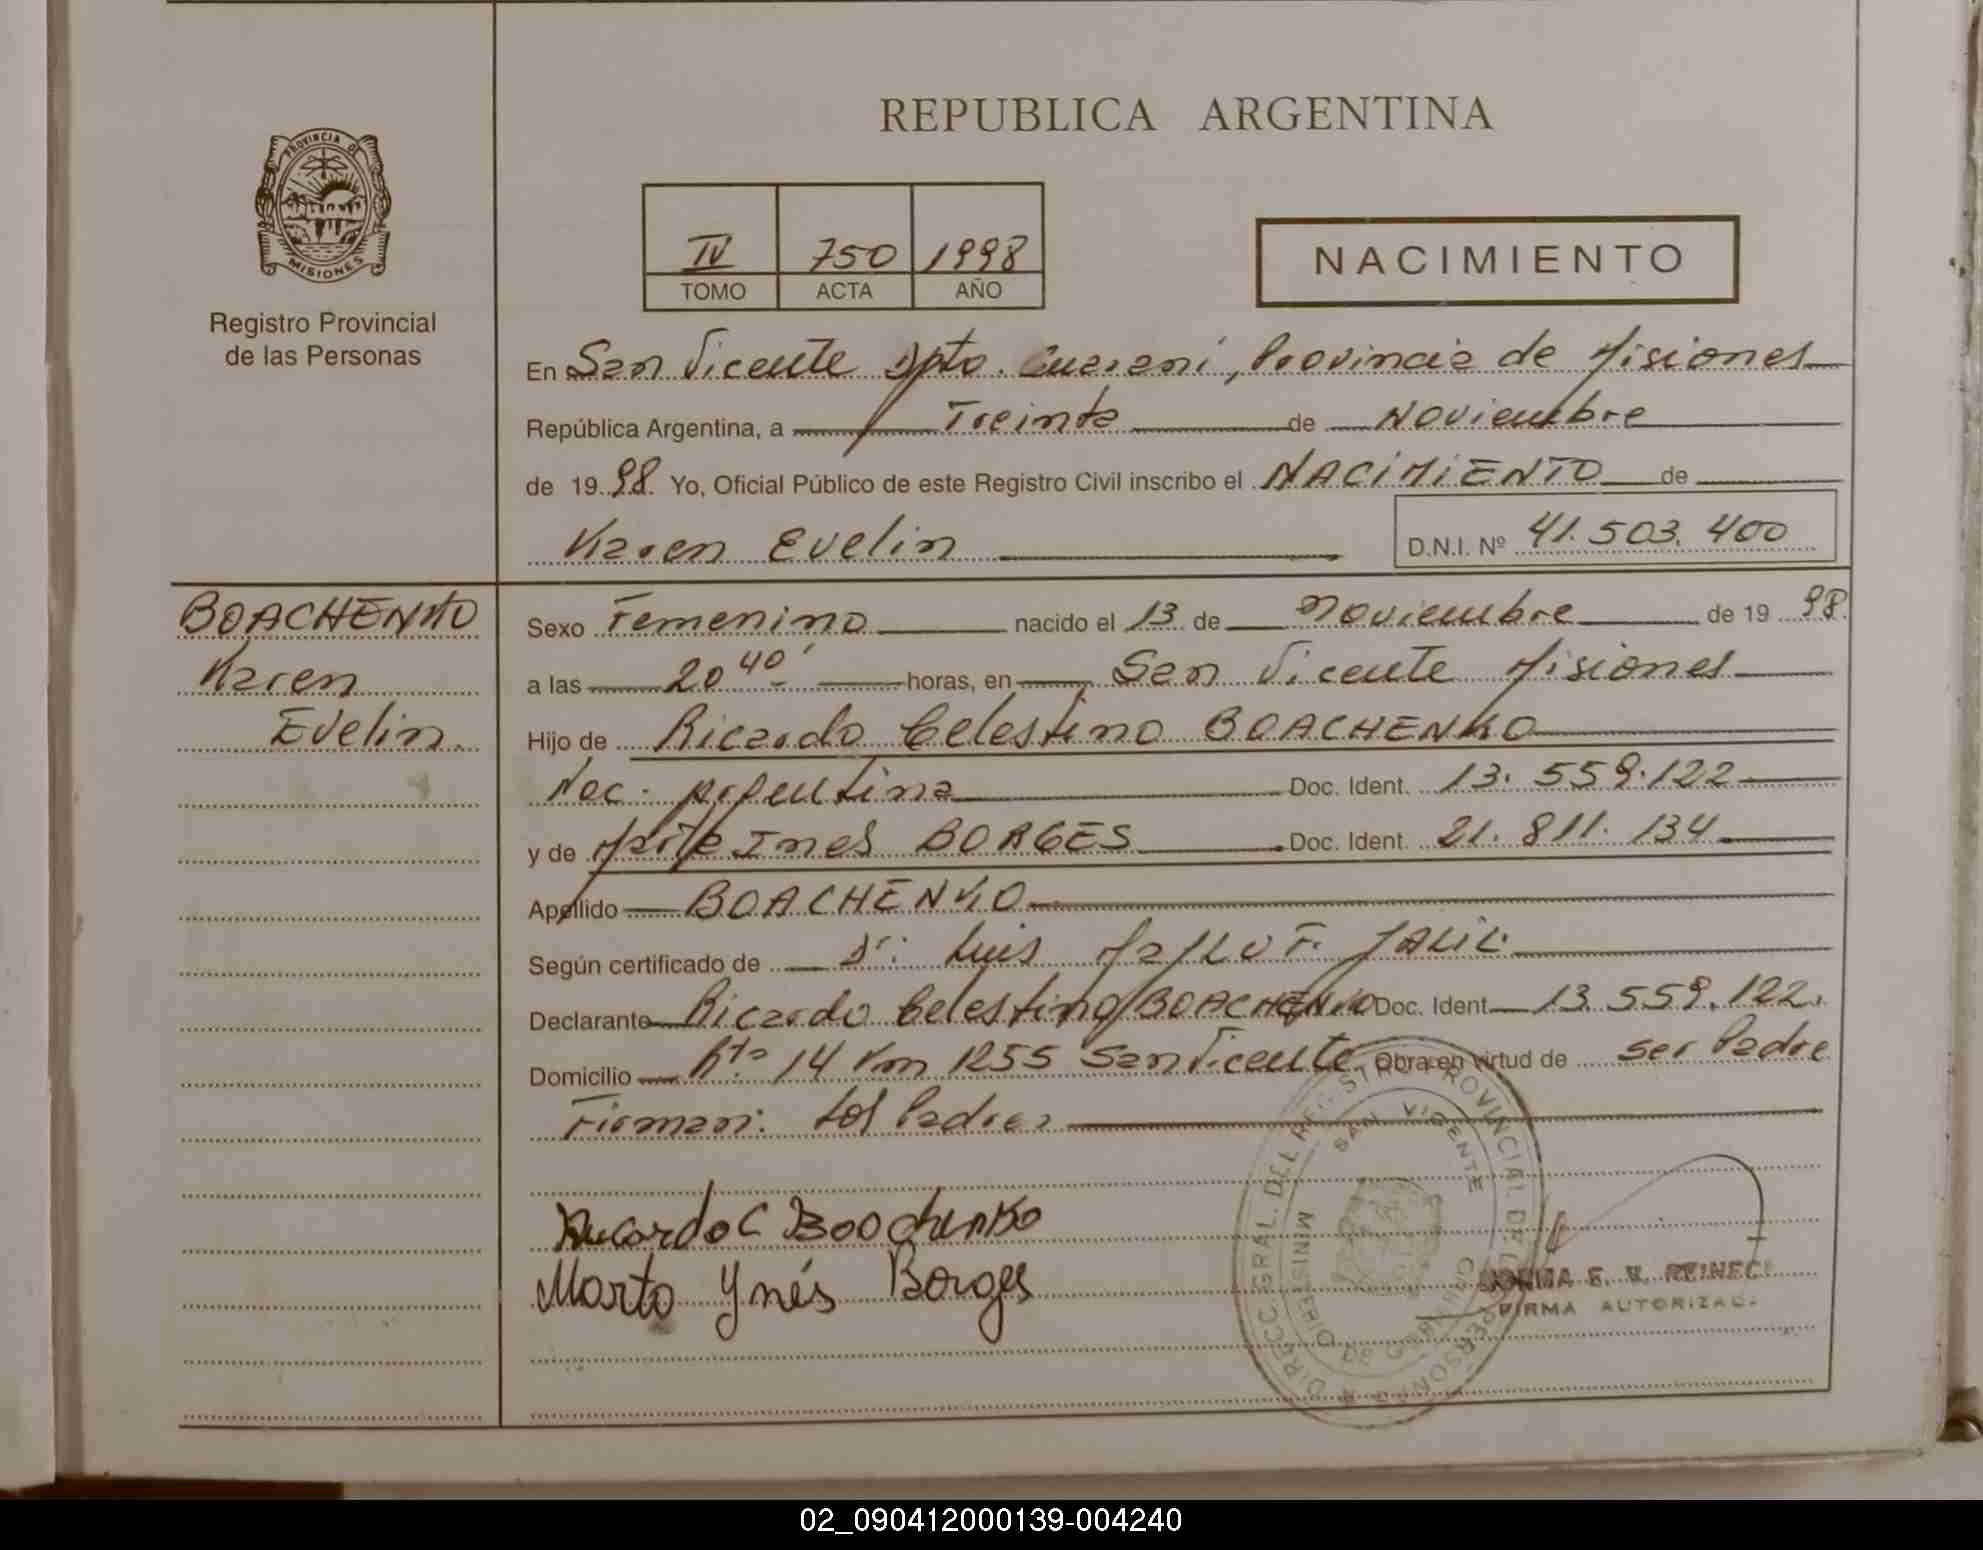 REPUBLICA ARGENTINA
PROVINCIA DE
MISIONES
Registro Provincial
de las Personas
IV 750 1998
TOMO ACTA AÑO
NACIMIENTO
En San Vicente Dpto. Guarani, Provincia de Misiones
República Argentina, a Treinta de Noviembre
de 19 98 Yo, Oficial Público de este Registro Civil inscribo el NACIMIENTO de
Karen Evelin D.N.I. Nº 41.503.400
BOACHENKO
Karen
Evelin.
Sexo Femenino nacido el 13 de Noviembre de 19 98.
a las 20 40' horas, en San Vicente Misiones
Hijo de Ricardo Celestino BOACHENKO
Nac. Argentina Doc. Ident. 13.559.122
y de Marta Ines BORGES Doc. Ident. 21.811.134
Apellido BOACHENKO
Según certificado de Dr. Luis F. JALIL
Declarante Ricardo Celestino BOACHENKO Doc. Ident. 13.559.122.
Domicilio Rta 14 Km 1255 San Vicente Obra en virtud de ser Padre
Firman: Los Padres
Ricardo C Boochenko
Marta Ynés Borges
DIRECC. GRAL. DEL REGISTRO PROVINCIAL DE PERSONAS
SAN VICENTE
E. R. REINECK
FIRMA AUTORIZADA
02_090412000139-004240